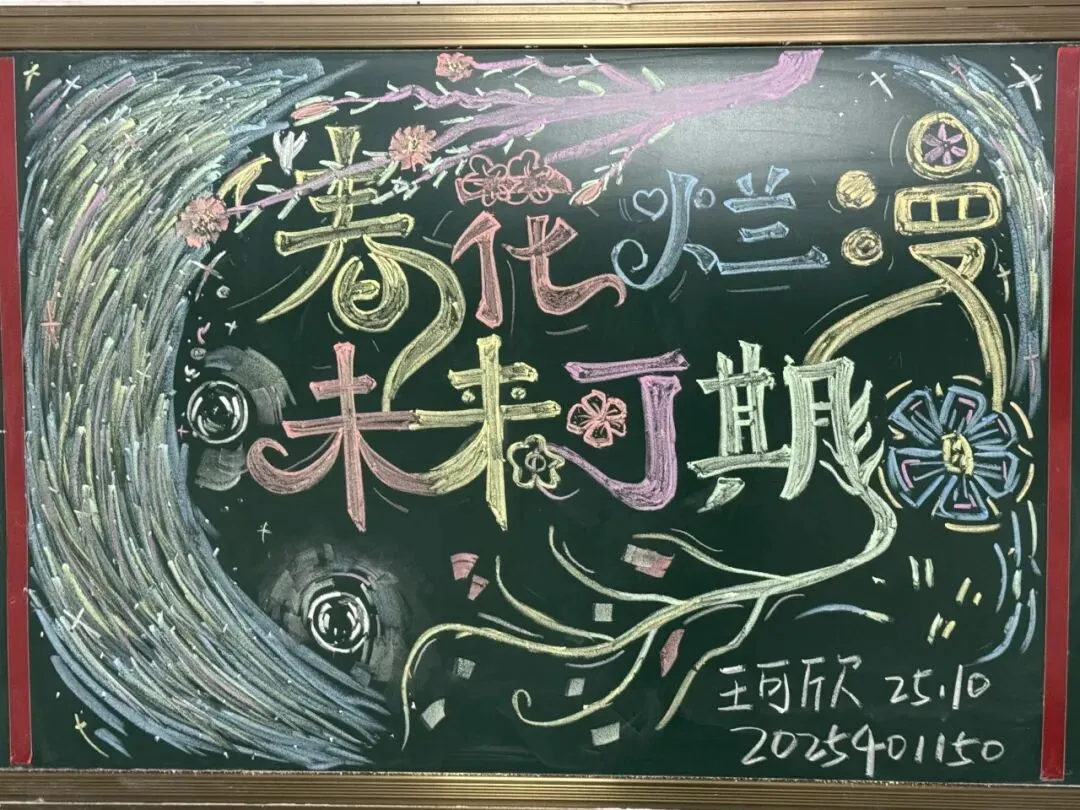 春花烂漫
未来可期
王珂欣 25.10
2025401150